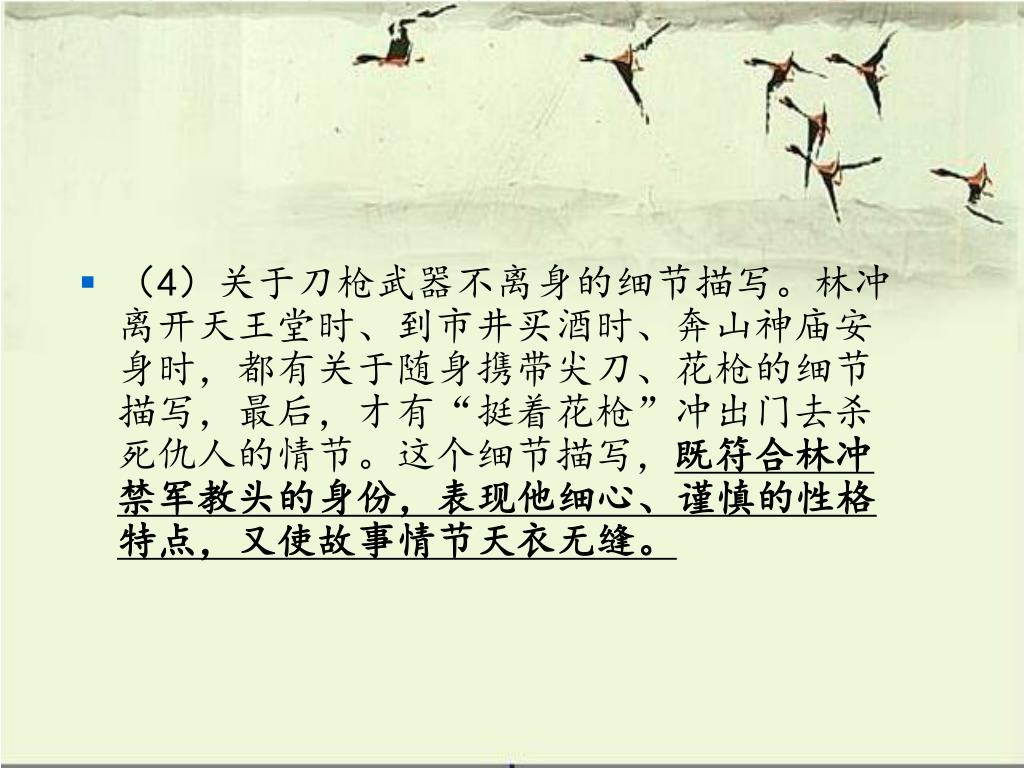 （4）关于刀枪武器不离身的细节描写。林冲
离开天王堂时、到市井买酒时、奔山神庙安
身时，都有关于随身携带尖刀、花枪的细节
描写，最后，才有“挺着花枪”冲出门去杀
死仇人的情节。这个细节描写，既符合林冲
禁军教头的身份，表现他细心、谨慎的性格
特点，又使故事情节天衣无缝。